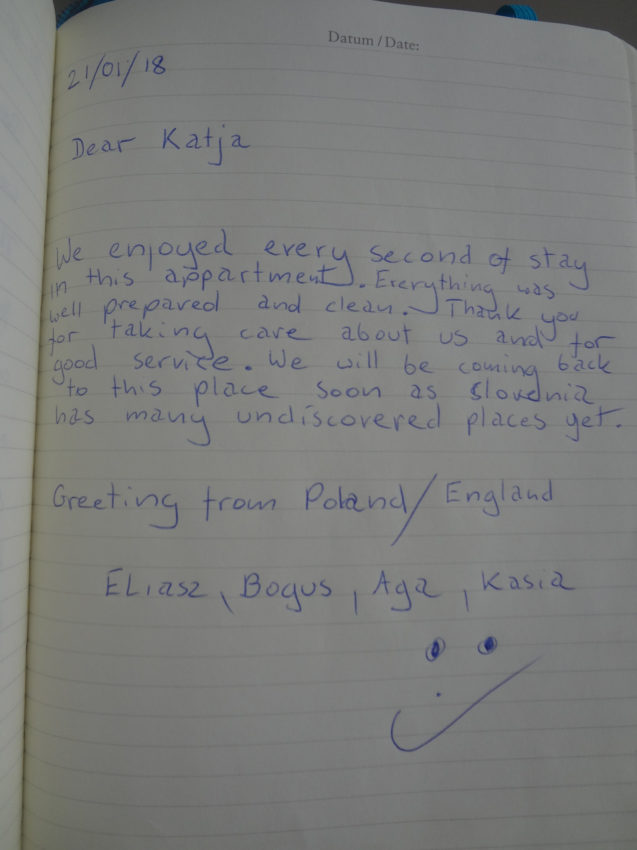 Datum / Date:
21/01/18
Dear Katja
We enjoyed every second of stay
in this appartment. Everything was
well prepared and clean. Thank you
for taking care about us and for
good service. We will be coming back
to this place soon as Slovenia
has many undiscovered places yet.
Greeting from Poland/England
Eliasz, Bogus, Aga, Kasia